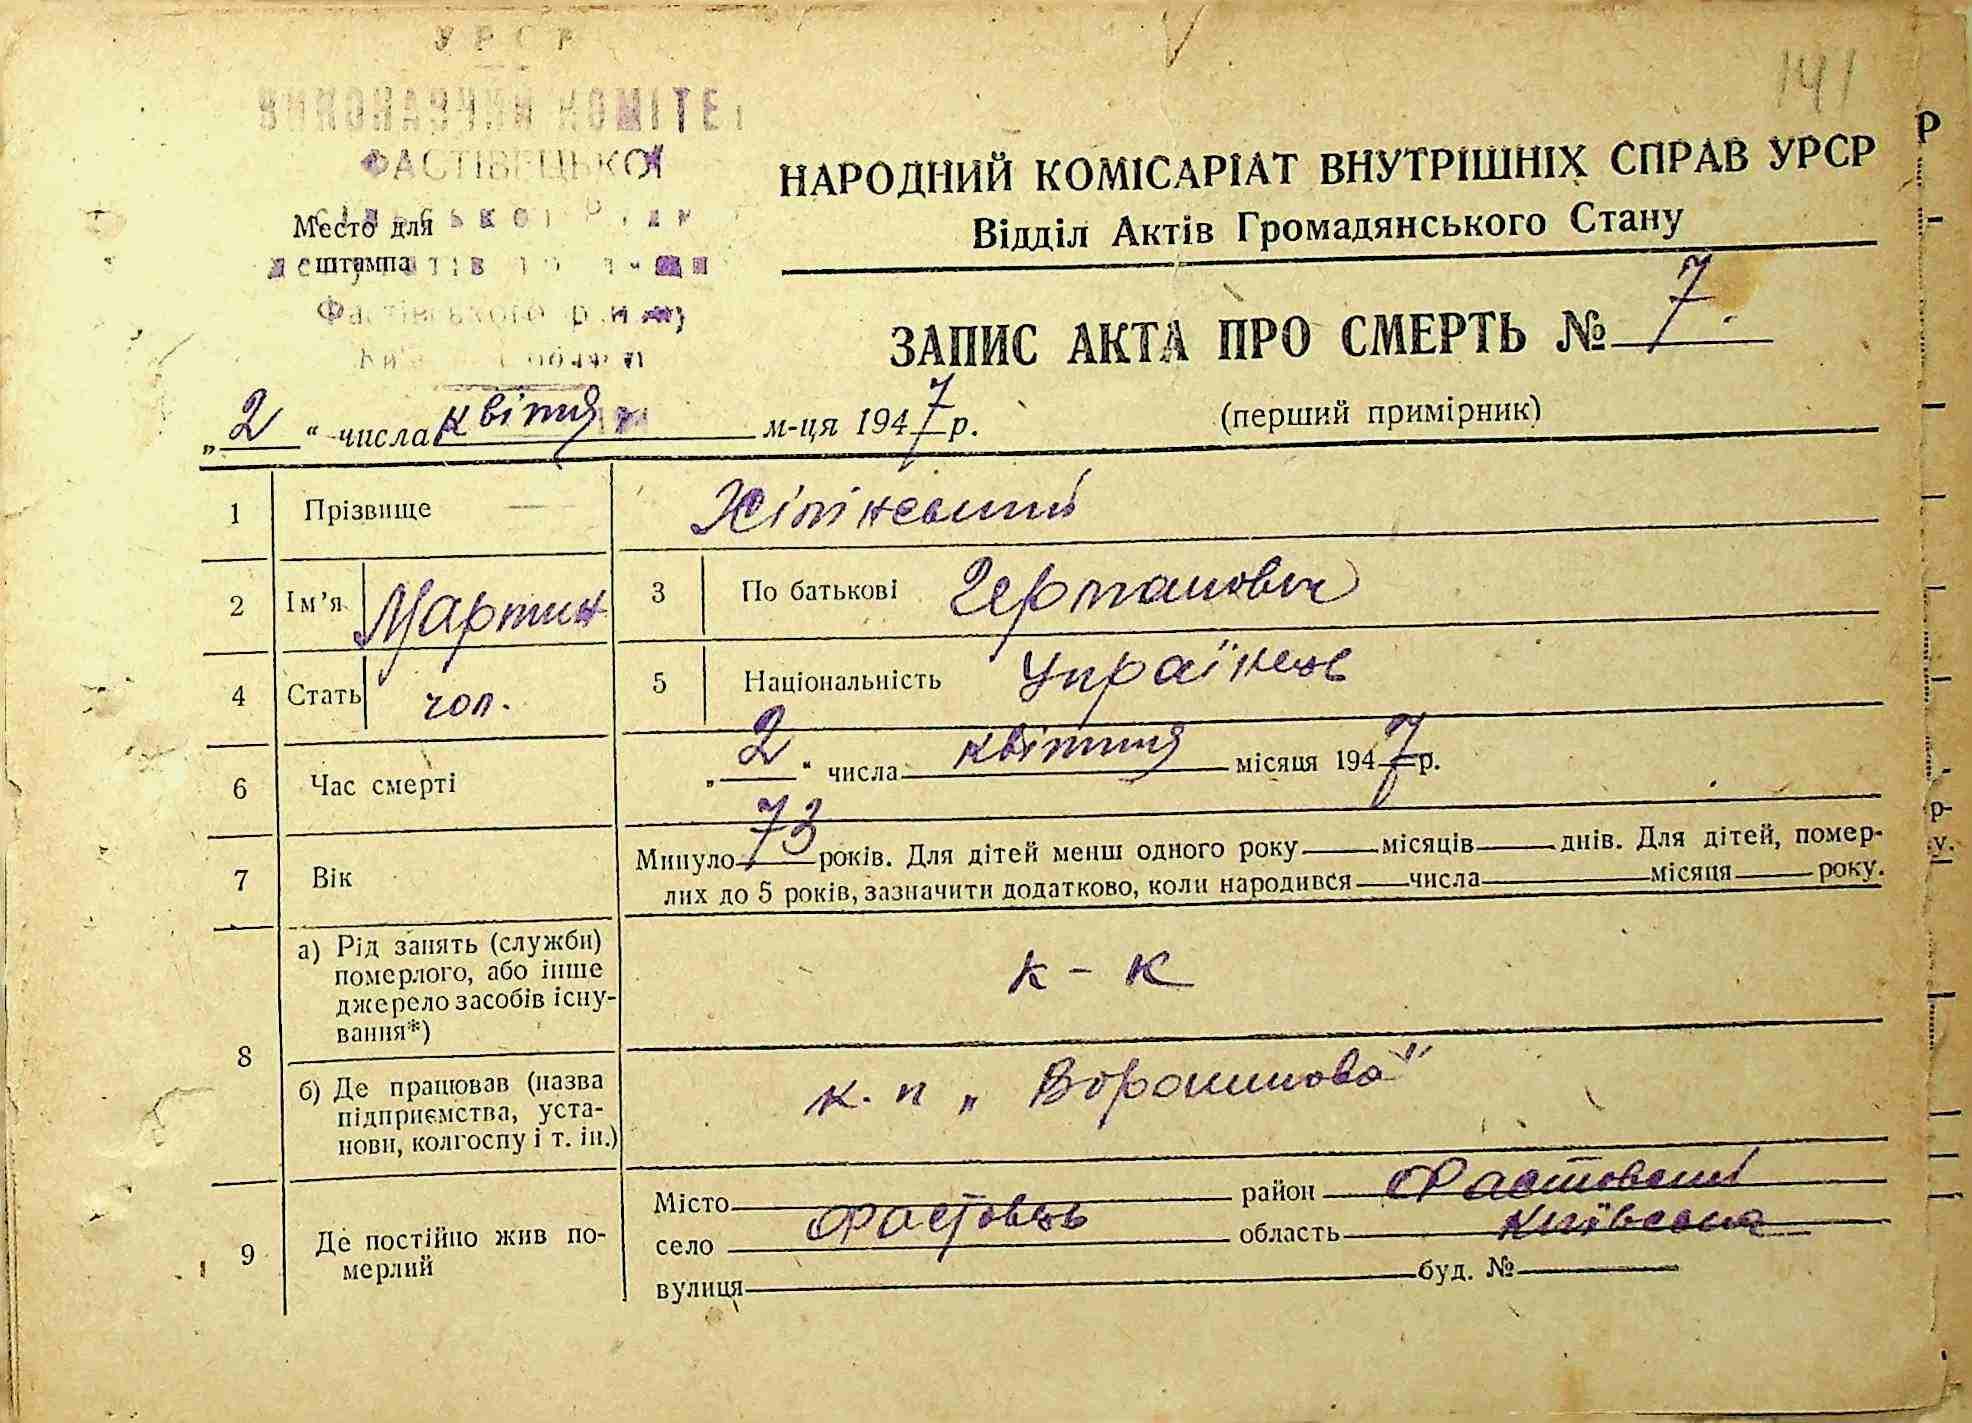 УРСР
141
ВИКОНАВЧИЙ КОМІТЕТ
ФАСТІВЕЦЬКОЇ
НАРОДНИЙ КОМІСАРІАТ ВНУТРІШНІХ СПРАВ УРСР
Відділ Актів Громадянського Стану
Место для
штампа
Фастівського р-ну
ЗАПИС АКТА ПРО СМЕРТЬ № 7.
(перший примірник)
„2“ числа квітня м-ця 1947 р.
1 Прізвище
2 Ім’я Мартин 3 По батькові Германович
4 Стать чол. 5 Національність Українець
6 Час смерті „2“ числа квітня місяця 1947 р.
7 Вік Минуло 73 років. Для дітей менш одного року місяців днів. Для дітей, помер-
лих до 5 років, зазначити додатково, коли народився числа місяця року.
8 а) Рід занять (служби)
померлого, або інше
джерело засобів існу-
вання*)
к-к
б) Де працював (назва
підприємства, уста-
нови, колгоспу і т. ін.)
к. п „Ворошилова“
9 Де постійно жив по-
мерлий
Місто район Фастовский
село Фастовець область Київська
вулиця буд. №